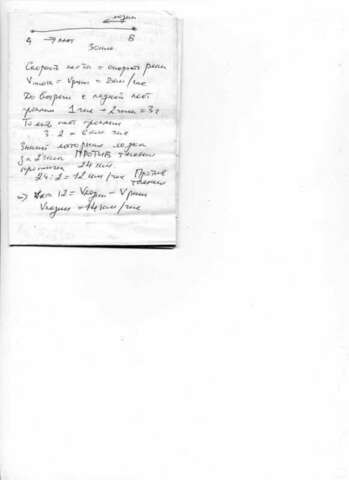 лодка
A → плот B
30 км
Скорость плота = скорость реки
Vплота = Vреки = 2 км/час
До встречи с лодкой плот
проплыл 1 час + 2 часа = 3 ч
То есть плот проплыл
3·2 = 6 км
Значит моторная лодка
за 2 часа ПРОТИВ течения
проплыла 24 км.
24:2 = 12 км/час Против
течения
→ 12 = Vлодки − Vреки
Vлодки = 14 км/час